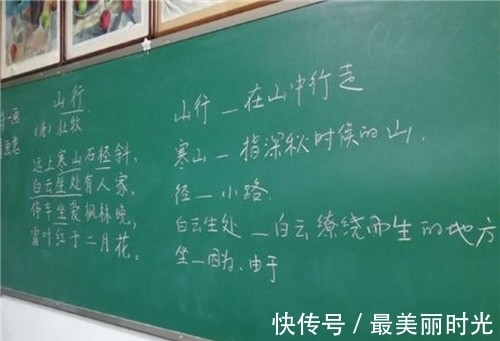 山行
(唐)杜牧
远上寒山石径斜,
白云生处有人家。
停车坐爱枫林晚,
霜叶红于二月花。
山行—在山中行走
寒山—指深秋时候的山.
径—小路.
白云生处—白云缭绕而生的地方
坐—因为、由于
快传号/最美丽时光